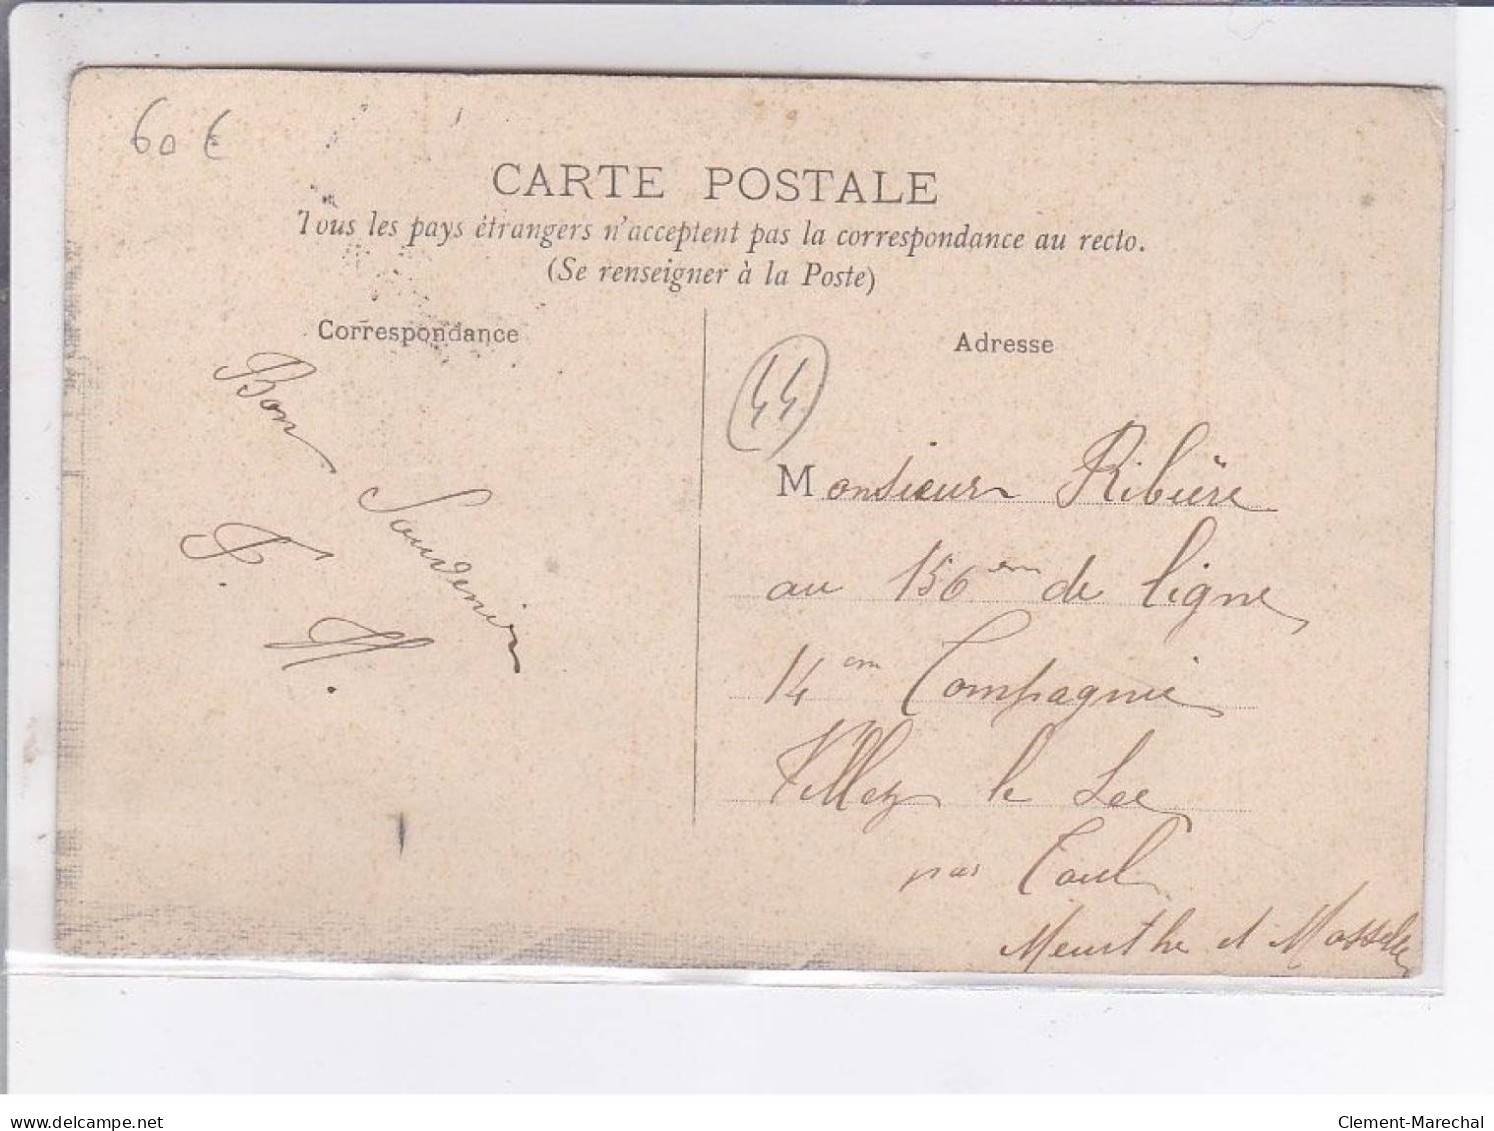 60 €
CARTE POSTALE
Tous les pays étrangers n'acceptent pas la correspondance au recto.
(Se renseigner à la Poste)
Correspondance
Bon Souvenir
F. H.
Adresse
44
Monsieur Ribière
au 156em de ligne
14em Compagnie
Villey le Sec
par Toul
Meurthe et Moselle
www.delcampe.net
Clement-Marechal